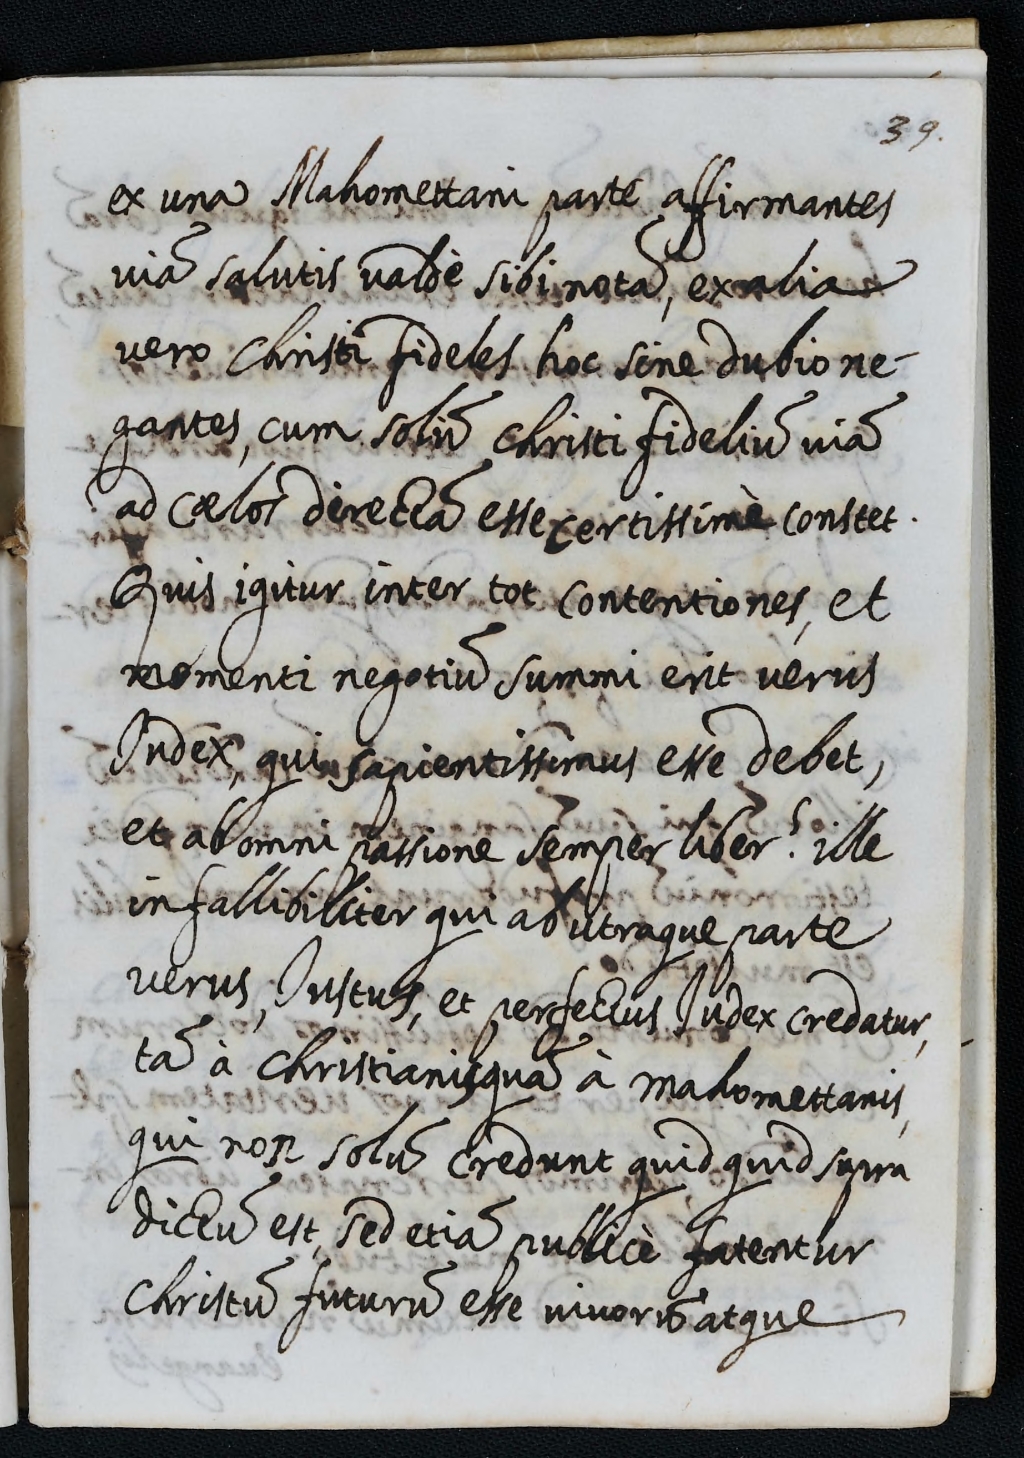 39.
ex una Mahomettani parte affirmantes
uiã salutis valdè sibi notã, ex alia
vero Christi fideles hoc sine dubio ne-
gantes, cum solũ Christi fideliũ uiã
ad Cælos directã esse certissimè constet.
Quis igitur inter tot contentiones, et
momenti negotiũ summi erit verus
Iudex, qui sapientissimus esse debet,
et ab omni passione semper liber? ille
infallibiliter qui ab utraque parte
verus, Iustus, et perfectus Iudex credatur,
tã à Christianis quã à Mahomettanis,
qui non solũ credunt quid quid supra
dictũ est, sed etiã publicè fatentur
Christũ futurũ esse uiuorũ atque